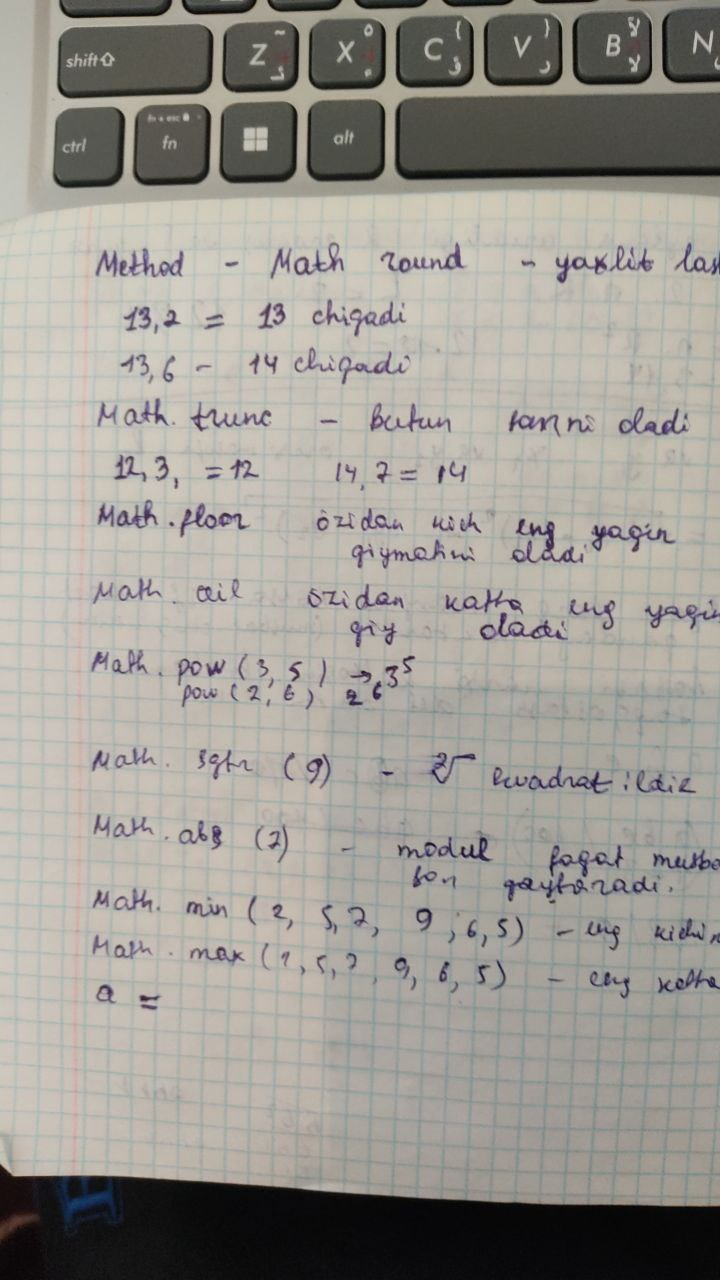 shift Z X C V B N
ctrl fn alt
Method - Math round - yaxlit las
13,2 = 13 chiqadi
13,6 - 14 chiqadi
Math. trunc - butun sonni oladi
12,3, = 12 14,7 = 14
Math. floor özidan kich eng yaqin
qiymatini oladi
Math. ceil özidan katta eng yaqin
qiy oladi
Math. pow (3, 5) → 3⁵
pow (2, 6) 2⁶
Math. sqtr (9) - kvadrat ildiz
Math. abs (7) - modul faqat musba
son qaytaradi.
Math. min (2, 5, 7, 9, 6, 5) - eng kichik
Math. max (1, 5, 7, 9, 6, 5) - eng katta
a =